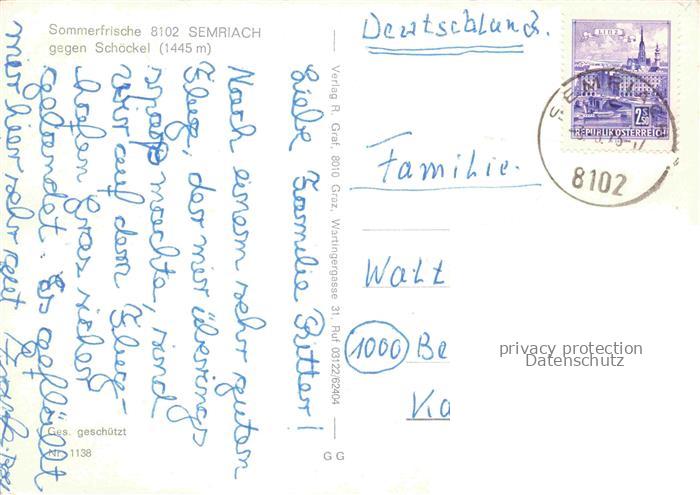 Sommerfrische 8102 SEMRIACH
gegen Schöckel (1445 m)
Liebe Familie Ritter!
Nach einem sehr guten
Flug, der mir übrigens
spaß machte, sind
wir auf dem Flug-
hafen Graz sicher
gelandet. Es gefällt
mir hier sehr gut
Ges. geschützt
Nr. 1138
Verlag R. Graf, 8010 Graz, Wartingergasse 31, Ruf 03122/62404
G G
Deutschland.
Familie.
Walt
1000 Be
Ka
LINZ
2.50
REPUBLIK ÖSTERREICH
8102
privacy protection
Datenschutz